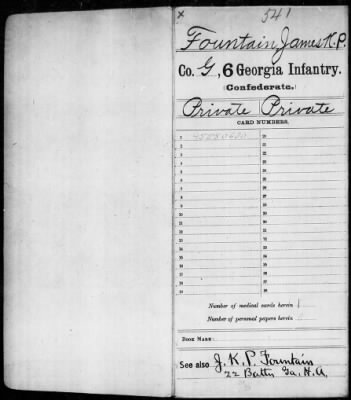 x
541
Fountain, James K. P.
Co. G, 6 Georgia Infantry.
(Confederate.)
Private Private
CARD NUMBERS.
1 20
2 21
3 22
4 23
5 24
6 25
7 26
8 27
9 28
10 29
11 30
12 31
13 32
14 33
15 34
16 35
17 36
18 37
19 38
Number of medical cards herein 1
Number of personal papers herein
BOOK MARK:
See also J. K. P. Fountain
22 Batty Ga. H. A.